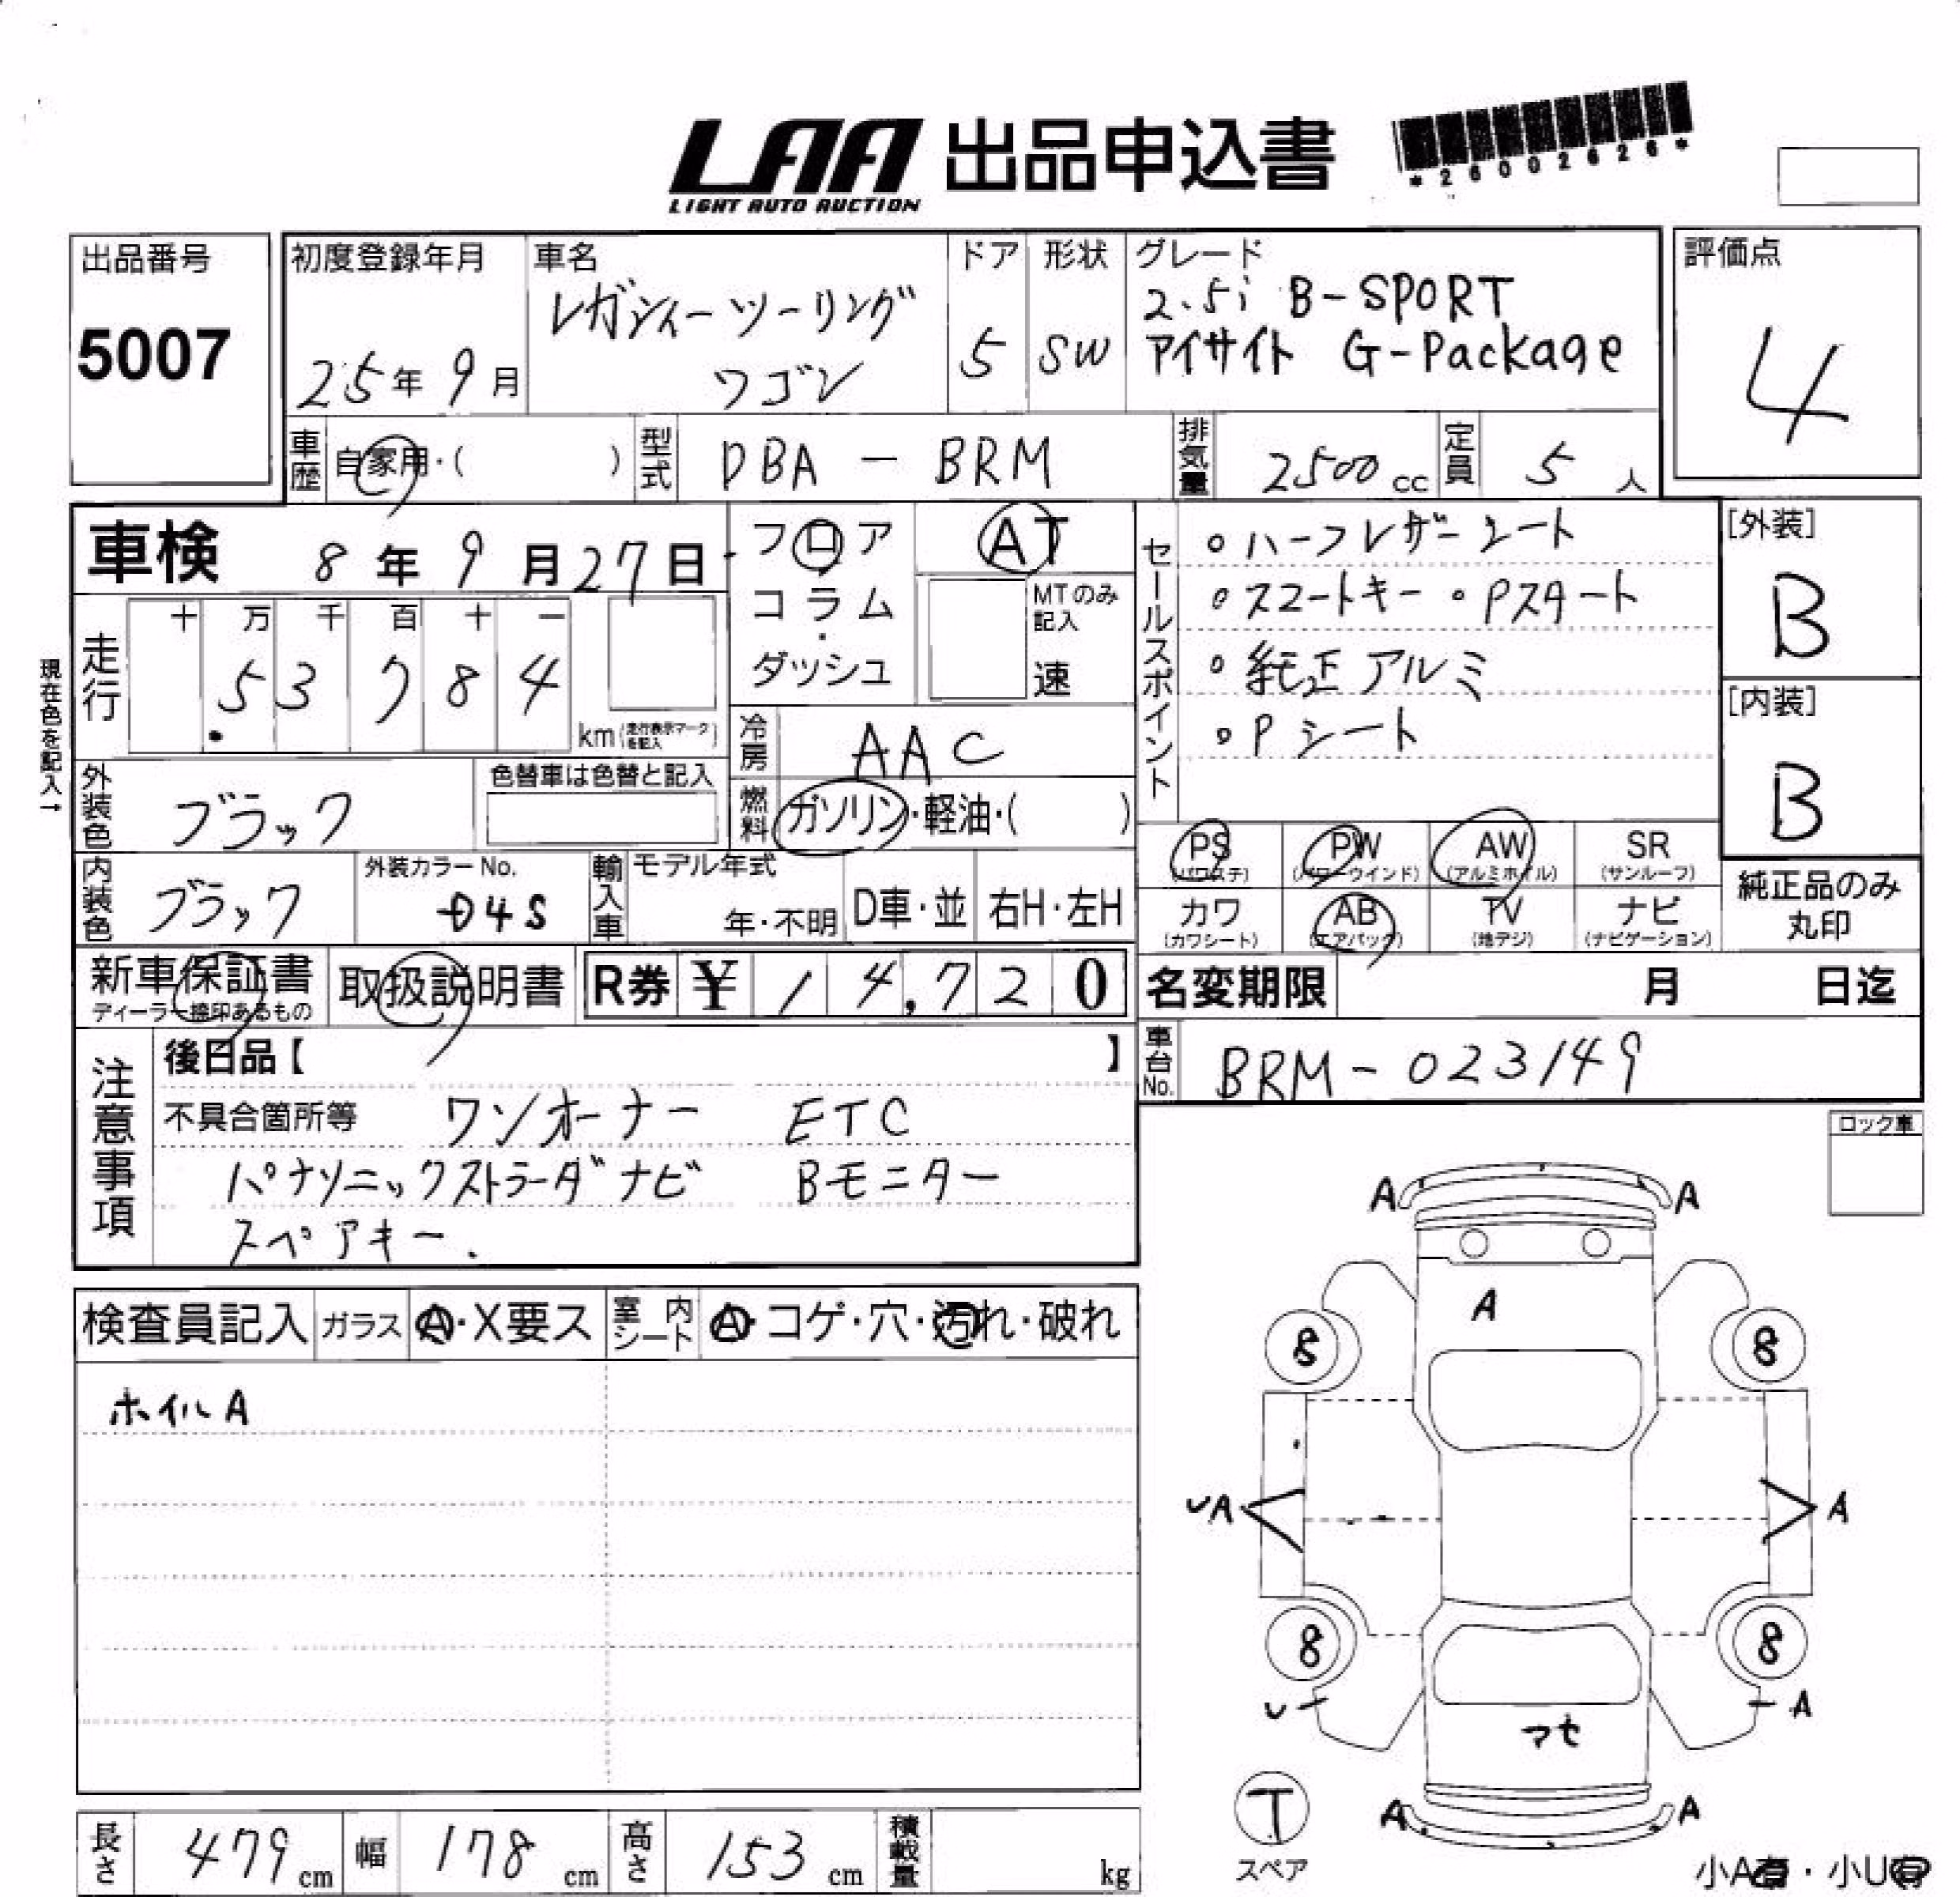 LAA 出品申込書
LIGHT AUTO AUCTION
*26002626*
出品番号
5007
初度登録年月
25年 9月
車名
レガシィーツーリング
ワゴン
ドア
5
形状
SW
グレード
2.5i B-SPORT
アイサイト G-Package
評価点
4
車歴
自家用・( )
型式
DBA - BRM
排気量
2500 cc
定員
5 人
車検 8年 9月 27日
フロア
コラム
・
ダッシュ
AT
MTのみ
記入
速
セールスポイント
。ハーフレザーシート
。スマートキー 。Pスタート
。純正アルミ
。Pシート
[外装]
B
[内装]
B
現在色を記入→
走行
十 万 千 百 十 一
5 3 7 8 4
km(走行表示マークを記入)
冷房
AAC
燃料
ガソリン・軽油・( )
外装色
ブラック
色替車は色替と記入
内装色
ブラック
外装カラーNo.
D4S
輸入車
モデル年式
年・不明
D車・並
右H・左H
PS
(パワステ)
PW
(パワーウインド)
AW
(アルミホイル)
SR
(サンルーフ)
カワ
(カワシート)
AB
(エアバック)
TV
(地デジ)
ナビ
(ナビゲーション)
純正品のみ
丸印
新車保証書
ディーラー捺印あるもの
取扱説明書
R券 ¥ 14,720
名変期限 月 日迄
車台No.
BRM-023149
注意事項
後日品【 】
不具合箇所等 ワンオーナー ETC
パナソニックストラーダナビ Bモニター
スペアキー.
ロック車
検査員記入 ガラス A・X要ス 室内シート A・コゲ・穴・汚れ・破れ
ホイルA
A A
A
8 8
UA A
8 8
U A
マセ
A A
T
スペア
小A有・小U有
長さ 479 cm 幅 178 cm 高さ 153 cm 積載量 kg